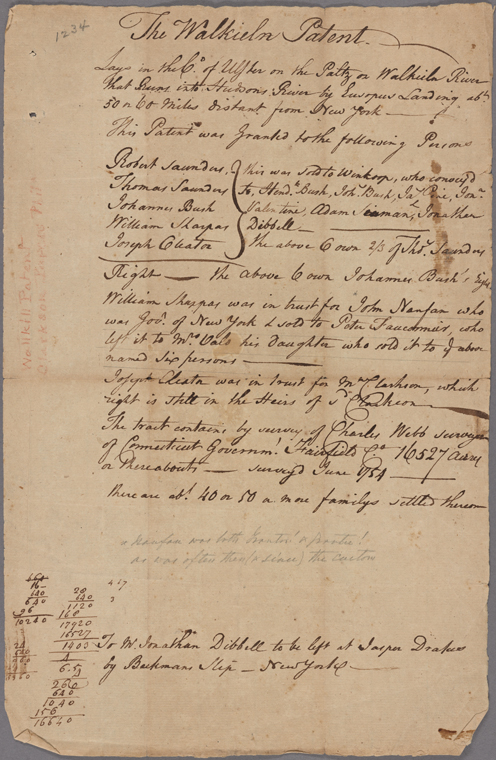 1234
The Walkieln Patent.
Lays in the Co. of Ulster on the Paltz or Walkieln River
that Runs into Hudsons River by Eusopus Landing abt.
50 or 60 Miles distant from New York
This Patent was Granted to the following Persons
Robert Saunders, this was sold to Winkoop, who convey'd
Thomas Saunders to, Hend. Bush, Joh. Bush, Ja. Pine, Jon.
Johannes Bush Valentine, Adam Seaman, Jonathan
William Sharpas Dibbell
Joseph Cleator the above 6 own 2/3 of Thos. Saunders
Right — the above 6 own Johannes Bush's Right
William Sharpas was in trust for John Nanfan who
was Gov. of New York & sold to Peter Fauconnier, who
left it to Mrs. Vals his Daughter who sold it to ye above
named Six persons
Joseph Cleator was in trust for Mr. Clarkson, which
right is still in the Heirs of Sd. Clarkson
The tract contains by survey of Charles Webb surveyor
of Connecticut Governmt. Fairfield Co. 16527 Acres
or thereabouts — survey'd June 1754
there are abt. 40 or 50 or more familys settled thereon
x Nanfan was both Grantor & grantee!
as was often then (& since) the custom
To Mr. Jonathan Dibbell to be left at Jasper Drakes
by Beekmans Slip — New York
Walkill Patent
16
640
640
96
10240
28
640
1120
168
17920
16527
1403
4
6.5
260
640
1040
156
16640